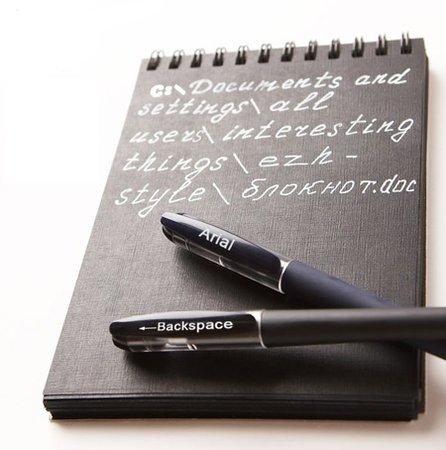 C:\Documents and
settings\all
users\interesting
things\ezh-
style\блокнот.doc
Arial
←Backspace